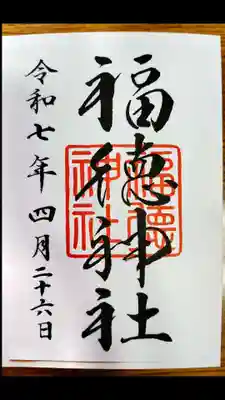 福徳神社
福德神社
令和七年四月二十六日